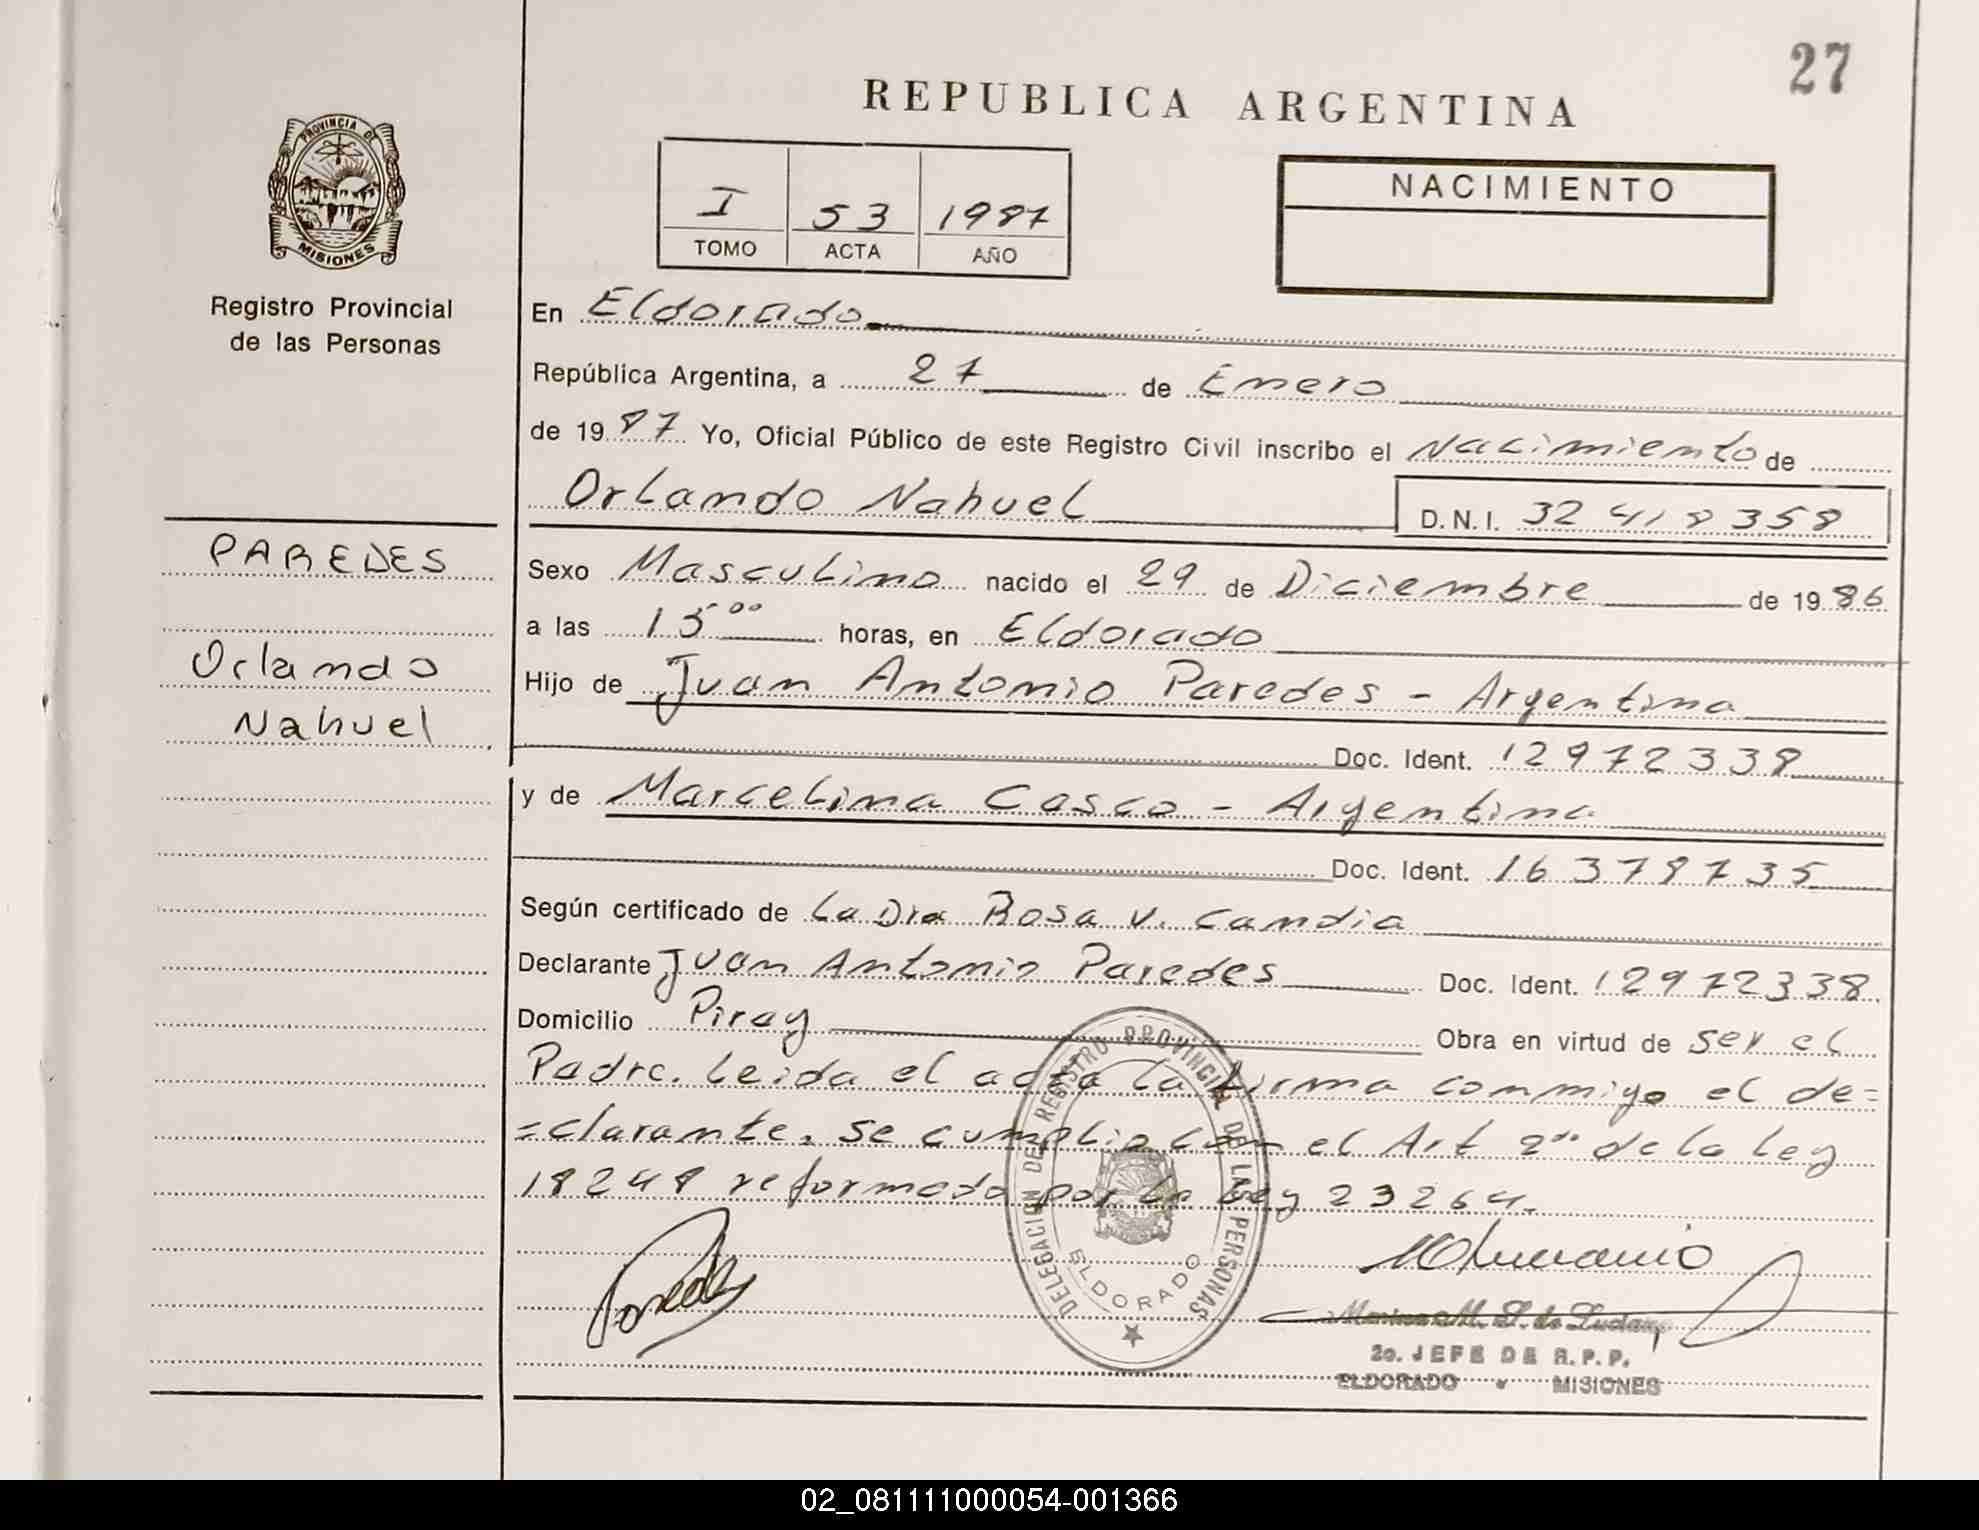 27
REPUBLICA ARGENTINA
PROVINCIA DE
MISIONES
Registro Provincial
de las Personas
I 53 1987
TOMO ACTA AÑO
NACIMIENTO
En Eldorado
República Argentina, a 27 de Enero
de 1987 Yo, Oficial Público de este Registro Civil inscribo el Nacimiento de
Orlando Nahuel D.N.I. 32 418 358
PAREDES
Orlando
Nahuel
Sexo Masculino nacido el 29 de Diciembre de 1986
a las 15 00 horas, en Eldorado
Hijo de Juan Antonio Paredes - Argentina
Doc. Ident. 12972338
y de Marcelina Casco - Argentina
Doc. Ident. 16378735
Según certificado de La Dra Rosa V. Candia
Declarante Juan Antonio Paredes Doc. Ident. 12972338
Domicilio Piray Obra en virtud de ser el
Padre. Leida el acta la firma conmigo el de=
=clarante. Se cumplio con el Art 2do de la Ley
18248 reformado por la Ley 23264.
DELEGACION DEL REGISTRO PROVINCIAL DE LAS PERSONAS
ELDORADO
Paredes
2o. JEFE DE R.P.P.
ELDORADO - MISIONES
02_081111000054-001366